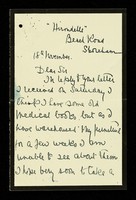 "Hirondelle"
Beach Road
Shoreham
18th November.
Dear Sir
In reply to your letter
I received on Saturday, I
think I have some old
medical books but as I
have warehoused my furniture
for a few weeks I am
unable to see about them
I hope very soon to take a